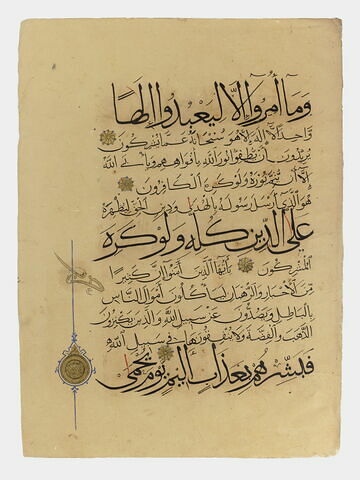 وَمَا أُمِرُوا إِلَّا لِيَعْبُدُوا إِلَهًا
وَاحِدًا لَا إِلَهَ إِلَّا هُوَ سُبْحَانَهُ عَمَّا يُشْرِكُونَ
يُرِيدُونَ أَنْ يُطْفِئُوا نُورَ اللَّهِ بِأَفْوَاهِهِمْ وَيَأْبَى اللَّهُ
إِلَّا أَنْ يُتِمَّ نُورَهُ وَلَوْ كَرِهَ الْكَافِرُونَ
هُوَ الَّذِي أَرْسَلَ رَسُولَهُ بِالْهُدَى وَدِينِ الْحَقِّ لِيُظْهِرَهُ
عَلَى الدِّينِ كُلِّهِ وَلَوْ كَرِهَ
الْمُشْرِكُونَ يَا أَيُّهَا الَّذِينَ آمَنُوا إِنَّ كَثِيرًا
مِنَ الْأَحْبَارِ وَالرُّهْبَانِ لَيَأْكُلُونَ أَمْوَالَ النَّاسِ
بِالْبَاطِلِ وَيَصُدُّونَ عَنْ سَبِيلِ اللَّهِ وَالَّذِينَ يَكْنِزُونَ
الذَّهَبَ وَالْفِضَّةَ وَلَا يُنْفِقُونَهَا فِي سَبِيلِ اللَّهِ
فَبَشِّرْهُمْ بِعَذَابٍ أَلِيمٍ يَوْمَ يُحْمَى